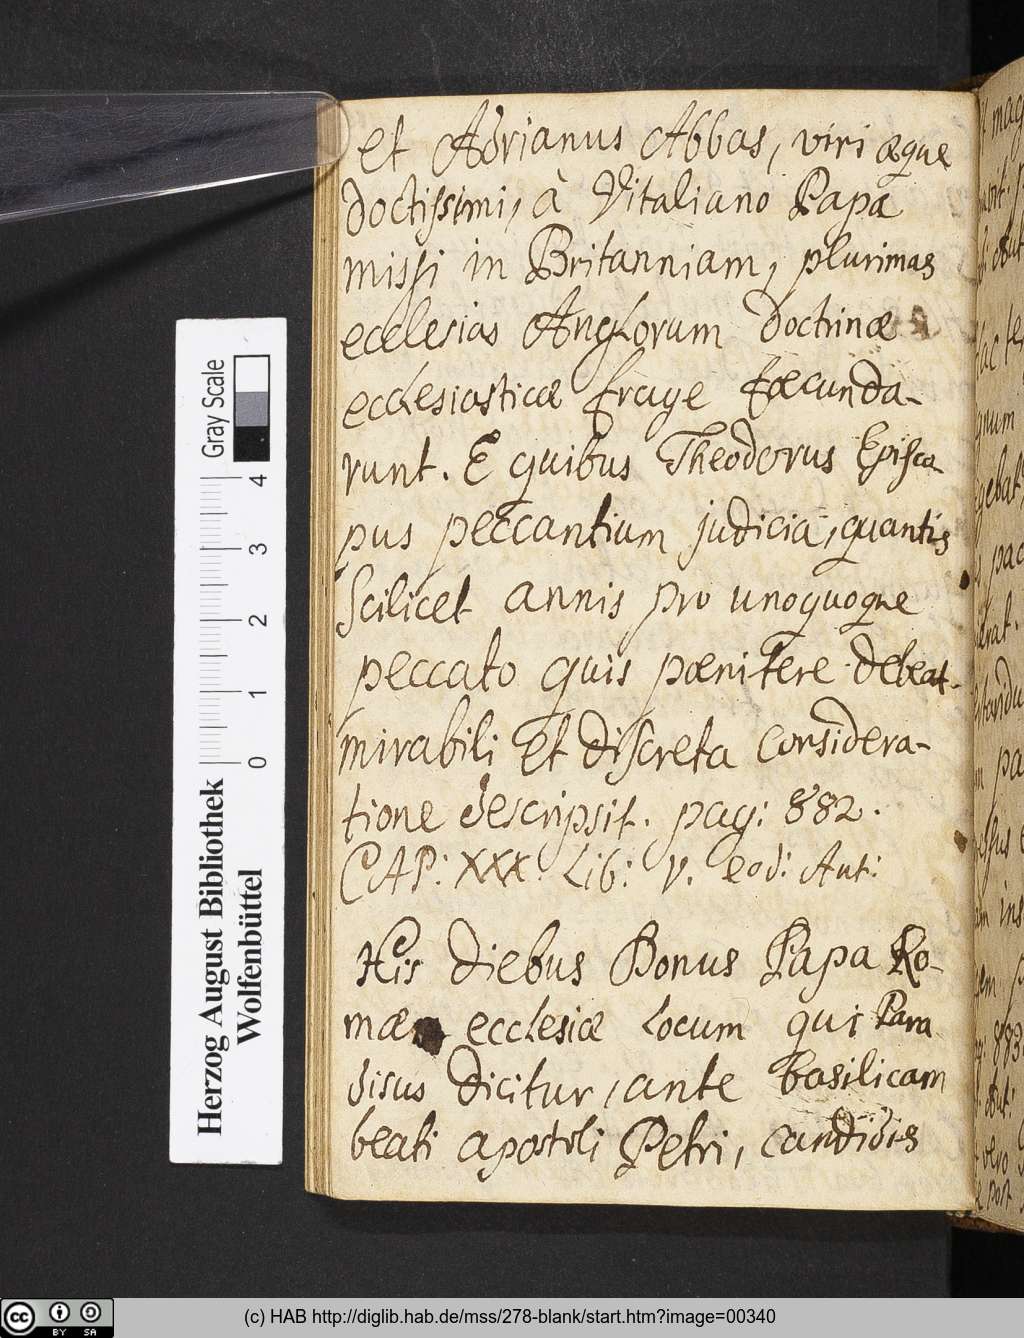 et Adrianus Abbas, viri æque
doctissimi, à Vitaliano Papa
missi in Britanniam, plurimas
ecclesias Anglorum doctrinæ
ecclesiasticæ fruge fœcunda-
runt. E quibus Theodorus Episco-
pus peccantium judicia, quantis
Scilicet annis pro unoquoque
peccato quis pœnitere debeat.
mirabili et discreta considera-
tione descripsit. pag: 882.
CAP: XXX. Lib: V. eod: Aut:
His diebus Bonus Papa Ro-
mæ ecclesiæ locum qui Para
disus dicitur, ante basilicam
beati apostoli Petri, candidis
Gray Scale
4
3
2
1
0
Herzog August Bibliothek
Wolfenbüttel
cc BY SA
(c) HAB http://diglib.hab.de/mss/278-blank/start.htm?image=00340